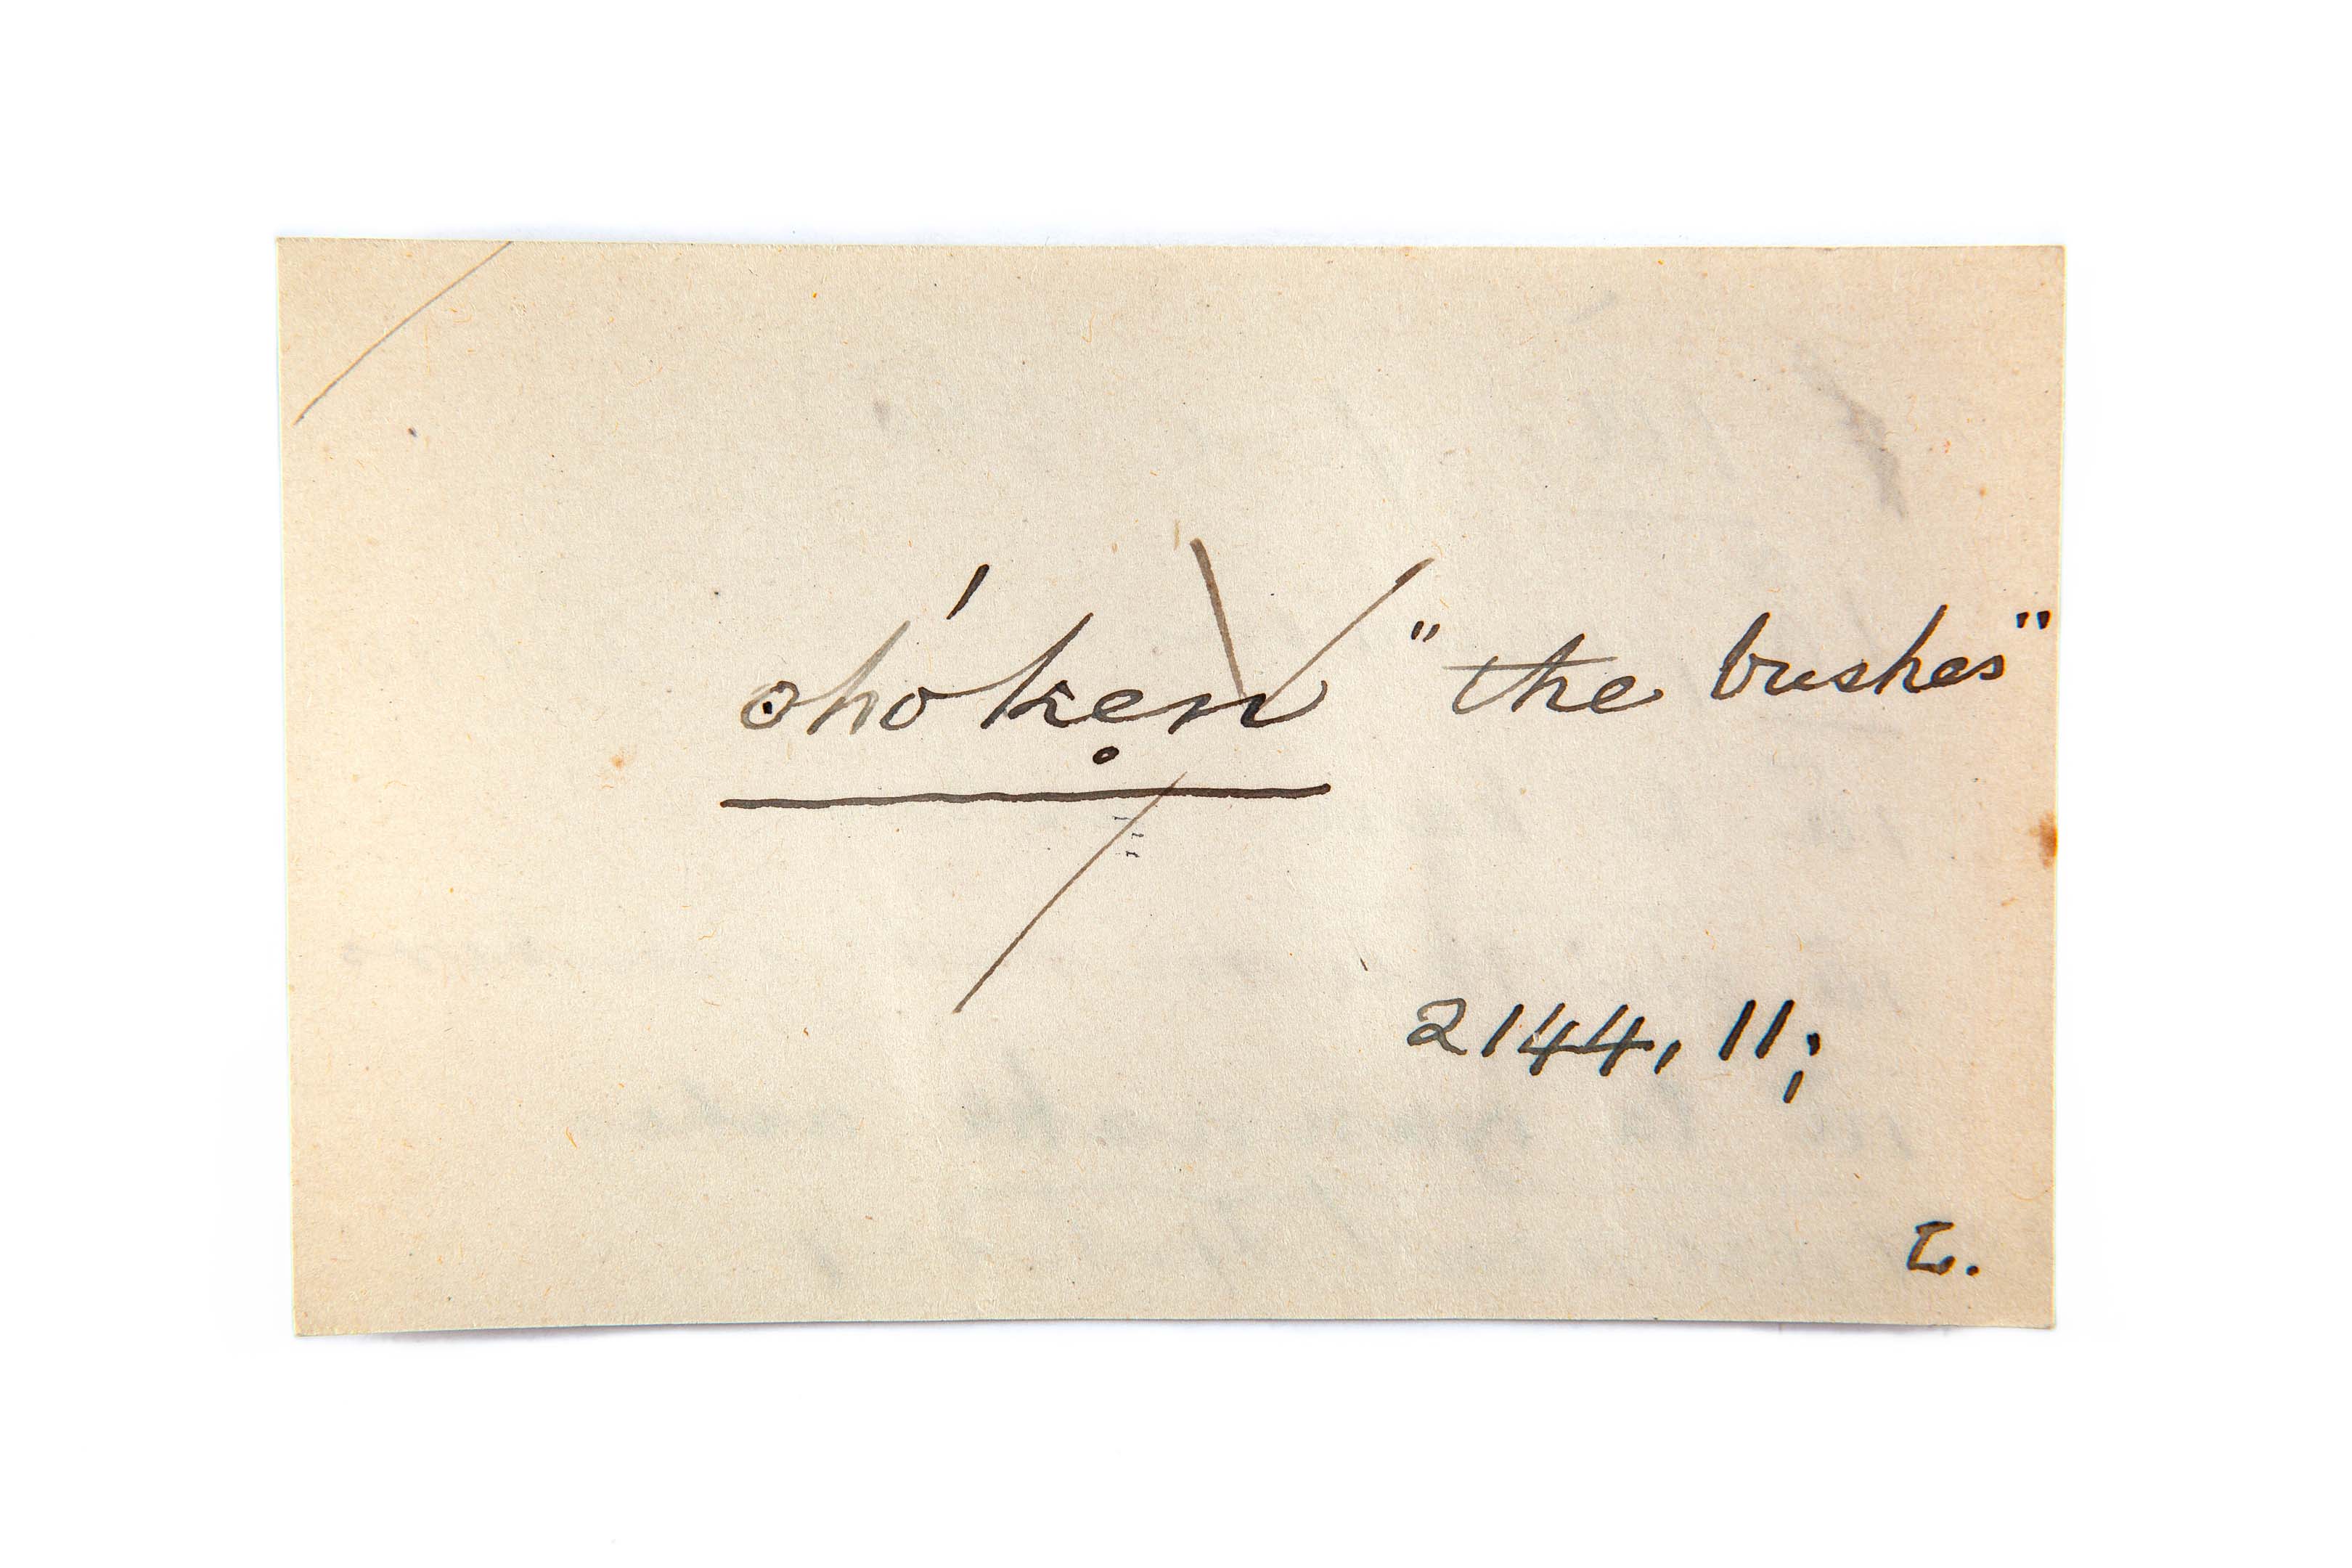 ohó̍ken̥ "the bushes"
2144, 11;
L.